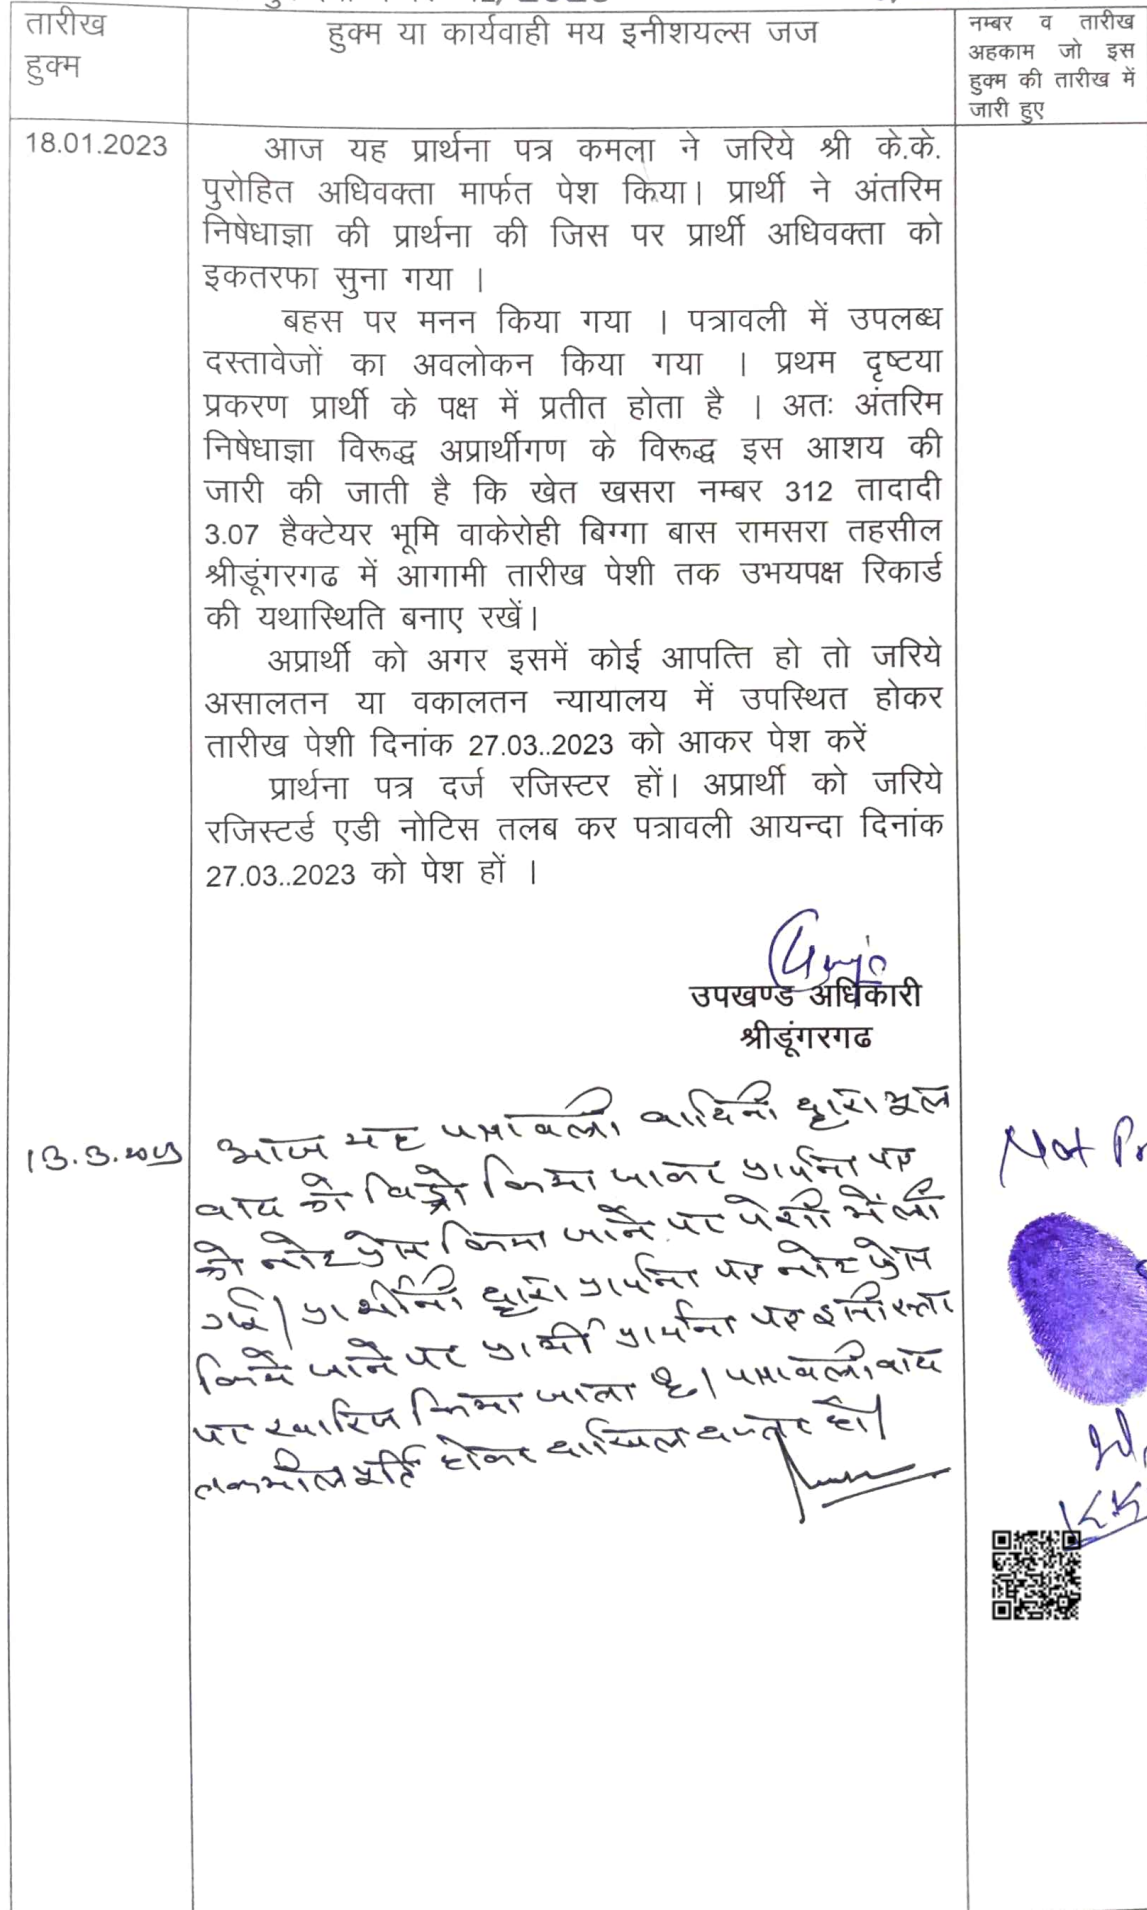 तारीख
हुक्म
हुक्म या कार्यवाही मय इनीशयल्स जज
नम्बर व तारीख
अहकाम जो इस
हुक्म की तारीख में
जारी हुए
18.01.2023
आज यह प्रार्थना पत्र कमला ने जरिये श्री के.के.
पुरोहित अधिवक्ता मार्फत पेश किया। प्रार्थी ने अंतरिम
निषेधाज्ञा की प्रार्थना की जिस पर प्रार्थी अधिवक्ता को
इकतरफा सुना गया ।
बहस पर मनन किया गया । पत्रावली में उपलब्ध
दस्तावेजों का अवलोकन किया गया । प्रथम दृष्टया
प्रकरण प्रार्थी के पक्ष में प्रतीत होता है । अतः अंतरिम
निषेधाज्ञा विरूद्ध अप्रार्थीगण के विरूद्ध इस आशय की
जारी की जाती है कि खेत खसरा नम्बर 312 तादादी
3.07 हैक्टेयर भूमि वाकेरोही बिग्गा बास रामसरा तहसील
श्रीडूंगरगढ में आगामी तारीख पेशी तक उभयपक्ष रिकार्ड
की यथास्थिति बनाए रखें।
अप्रार्थी को अगर इसमें कोई आपत्ति हो तो जरिये
असालतन या वकालतन न्यायालय में उपस्थित होकर
तारीख पेशी दिनांक 27.03..2023 को आकर पेश करें
प्रार्थना पत्र दर्ज रजिस्टर हों। अप्रार्थी को जरिये
रजिस्टर्ड एडी नोटिस तलब कर पत्रावली आयन्दा दिनांक
27.03..2023 को पेश हों ।
उपखण्ड अधिकारी
श्रीडूंगरगढ
13.3.2023
आज यह पत्रावली वादिनी द्वारा मूल
वाद को विड्रो किया जाकर प्रार्थना पत्र
को नोट प्रेस किया जाने पर पेशी में ली
गई। प्रार्थीनी द्वारा प्रार्थना पत्र नोट प्रेस
किये जाने पर प्रार्थी प्रार्थना पत्र इसी स्तर
पर खारिज किया जाता है। पत्रावली बाद
तकमील पूर्ति होकर दाखिल दफ्तर हो।
Not Pr
KK